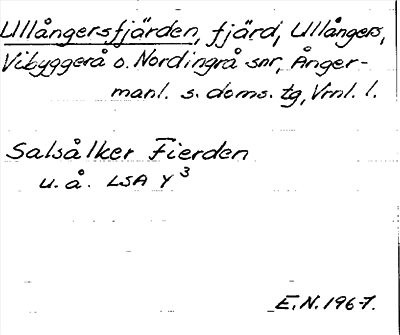 Ullångersfjärden, fjärd, Ullångers,
Vibyggerå o. Nordingrå snr, Ånger-
manl. s. doms. tg, Vrnl. l.
Salsålker Fierden
u. å. LSA Y³
E.N. 1967.